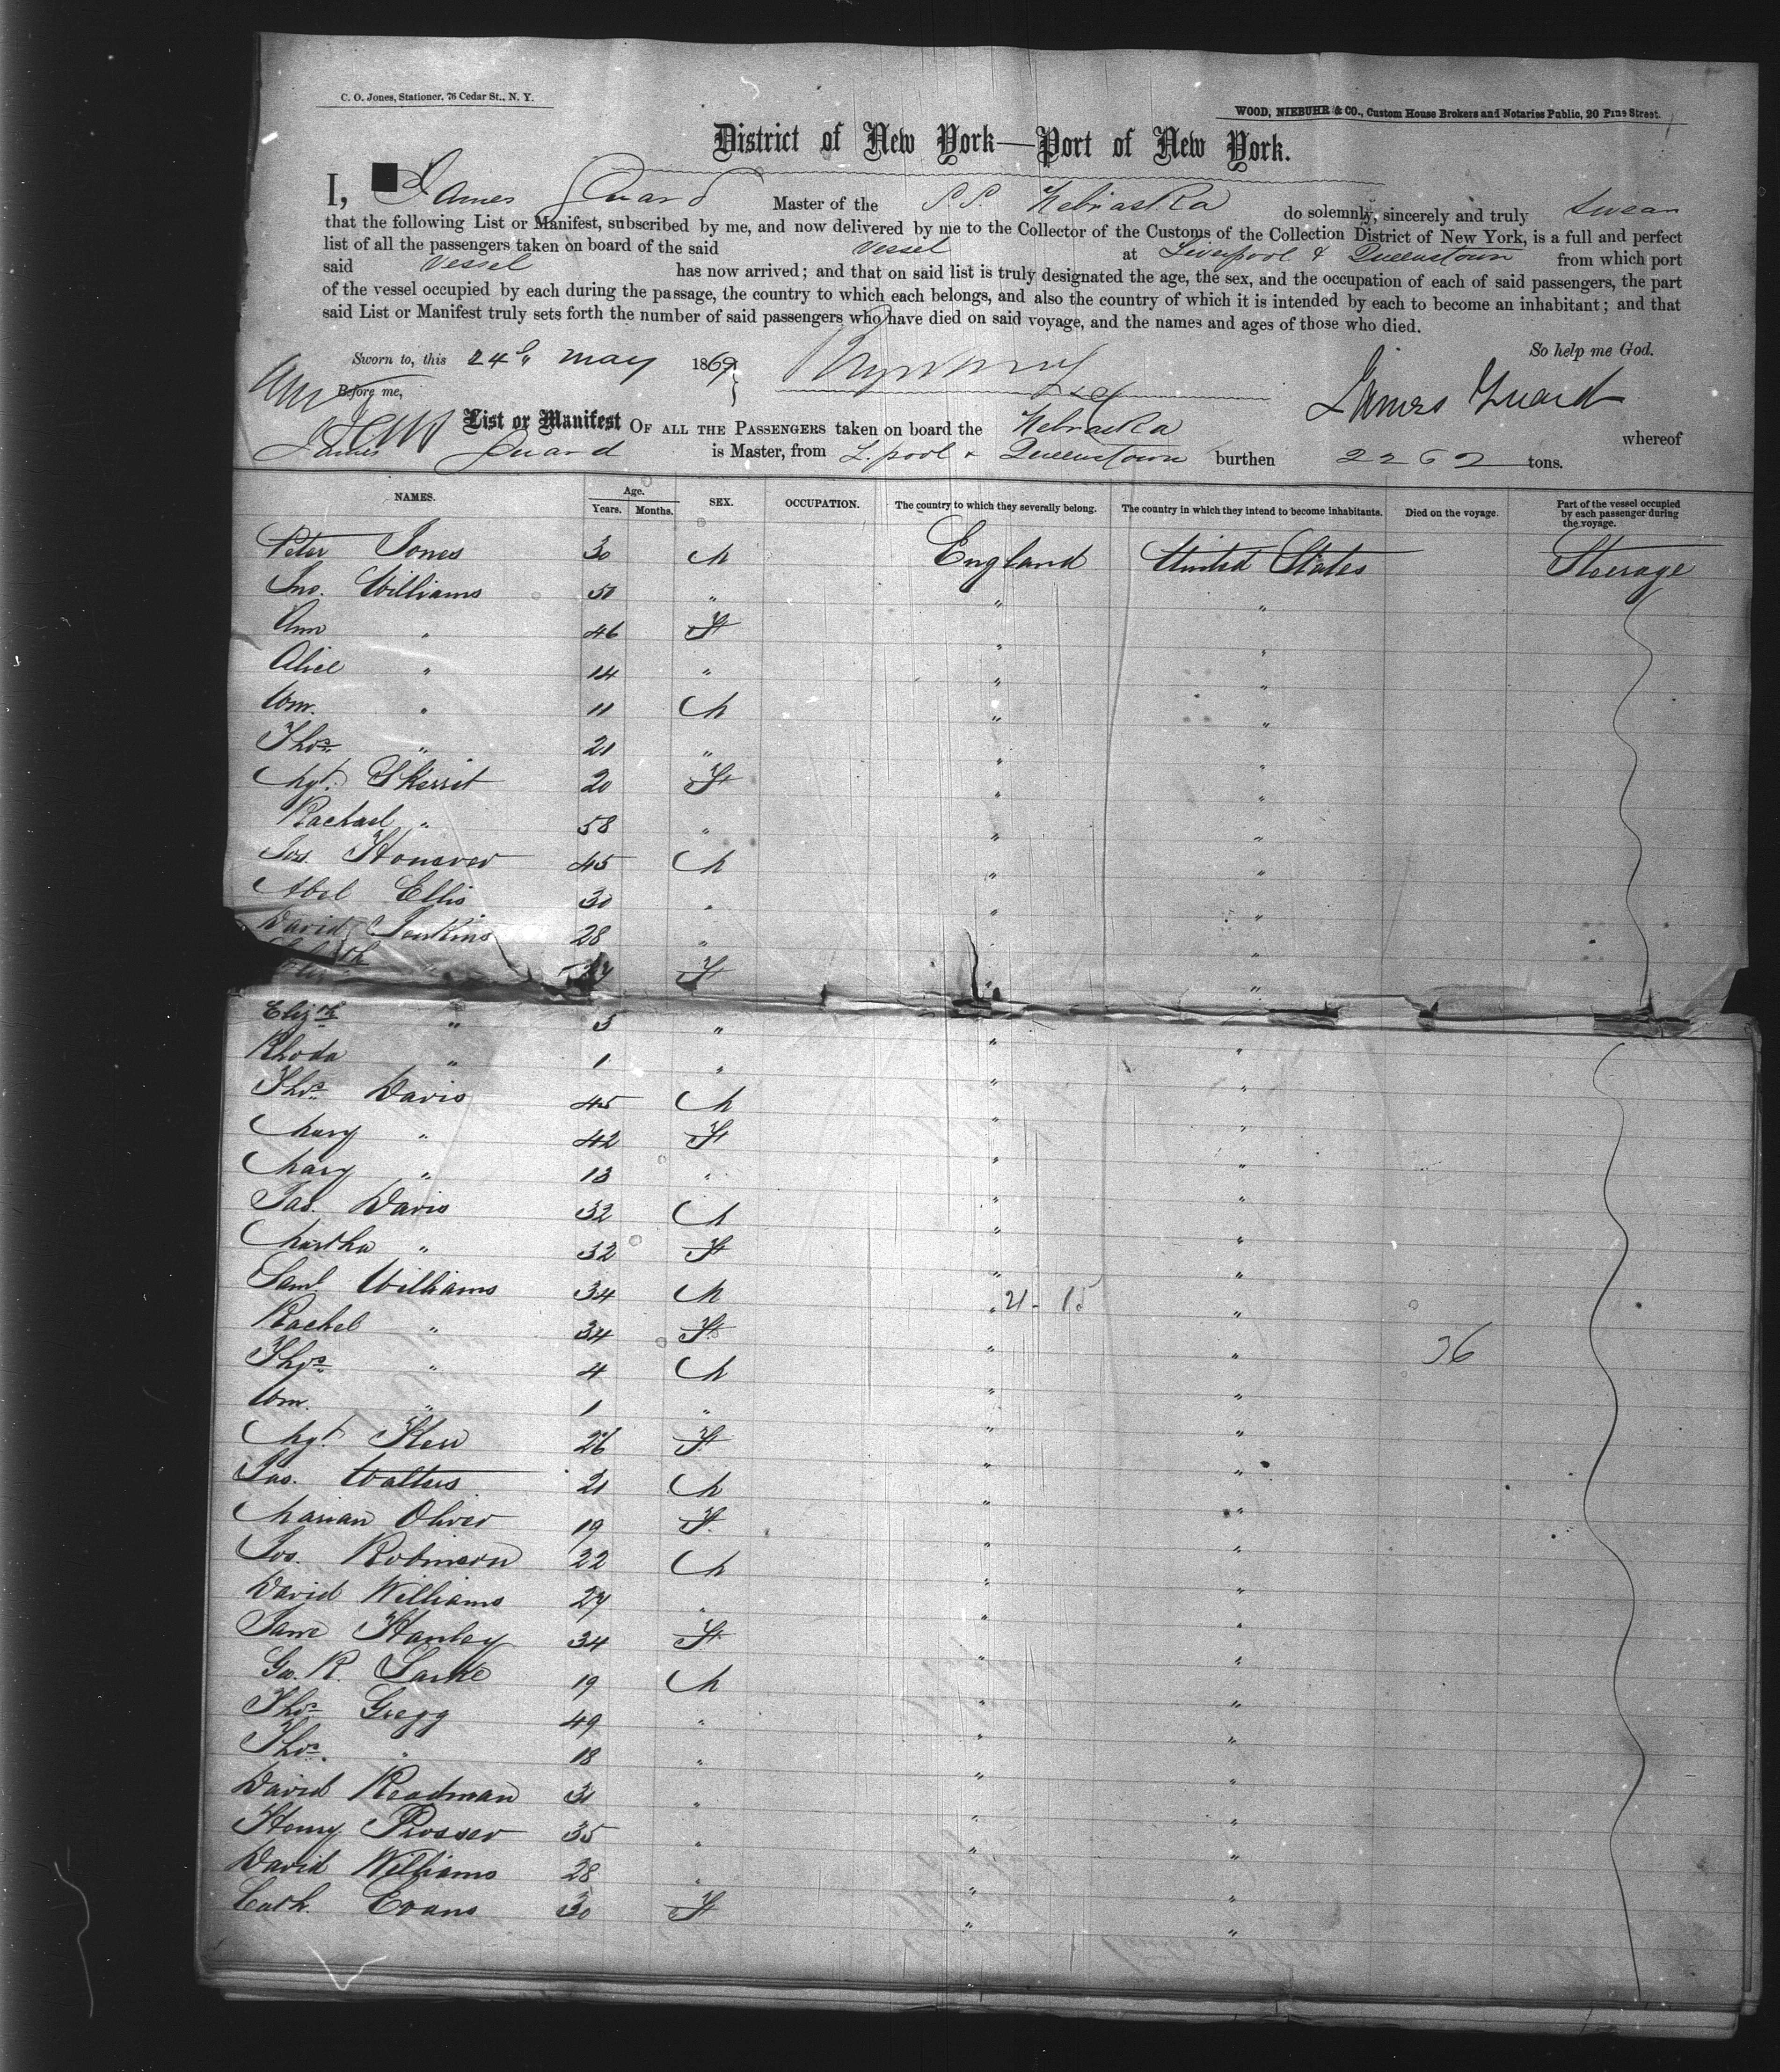 C. O. Jones, Stationer, 76 Cedar St., N. Y.
WOOD, NIEBUHR & CO., Custom House Brokers and Notaries Public, 20 Pine Street.
District of New York—Port of New York.
I, James Guard Master of the S.S. Nebraska do solemnly, sincerely and truly swear
that the following List or Manifest, subscribed by me, and now delivered by me to the Collector of the Customs of the Collection District of New York, is a full and perfect
list of all the passengers taken on board of the said vessel at Liverpool & Queenstown from which port
said vessel has now arrived; and that on said list is truly designated the age, the sex, and the occupation of each of said passengers, the part
of the vessel occupied by each during the passage, the country to which each belongs, and also the country of which it is intended by each to become an inhabitant; and that
said List or Manifest truly sets forth the number of said passengers who have died on said voyage, and the names and ages of those who died.
So help me God.
Sworn to, this 24th May 1869
Before me,
James Guard
List or Manifest OF ALL THE PASSENGERS taken on board the Nebraska whereof
James Guard is Master, from L.pool & Queenstown burthen 2262 tons.
NAMES. Age. Years. Months. SEX. OCCUPATION. The country to which they severally belong. The country in which they intend to become inhabitants. Died on the voyage. Part of the vessel occupied by each passenger during the voyage.
Peter Jones 30 M England United States Steerage
Jno. Williams 50 " " "
Ann " 46 F " "
Alice " 14 " " "
Wm. " 11 M " "
Thos. " 21 " " "
Mgt. Skerrit 20 F " "
Rachael " 58 " " "
Jos. 45 M " "
Abel Ellis 30 " " "
David Jenkins 28 " " "
F " "
Elizth " 5 " " "
Rhoda " 1 " " "
Thos. Davis 45 M " "
Mary " 42 F " "
Mary " 13 " " "
Jas. Davis 32 M " "
Martha " 32 F " "
Saml Williams 34 M " 21 - 15 "
Rachel " 34 F " " 36
Thos. " 4 M " "
Wm. " 1 " " "
Mgt. Kerr 26 F " "
Jas. Walters 21 M " "
Marian Oliver 19 F " "
Jos. Robinson 22 M " "
David Williams 27 " " "
Jane Hanley 34 F " "
Geo. R. Larke 19 M " "
Thos. Gregg 49 " " "
Thos. " 18 " " "
David Readman 31 " " "
Henry Prosser 35 " " "
David Williams 28 " " "
Cath. Evans 30 F " "